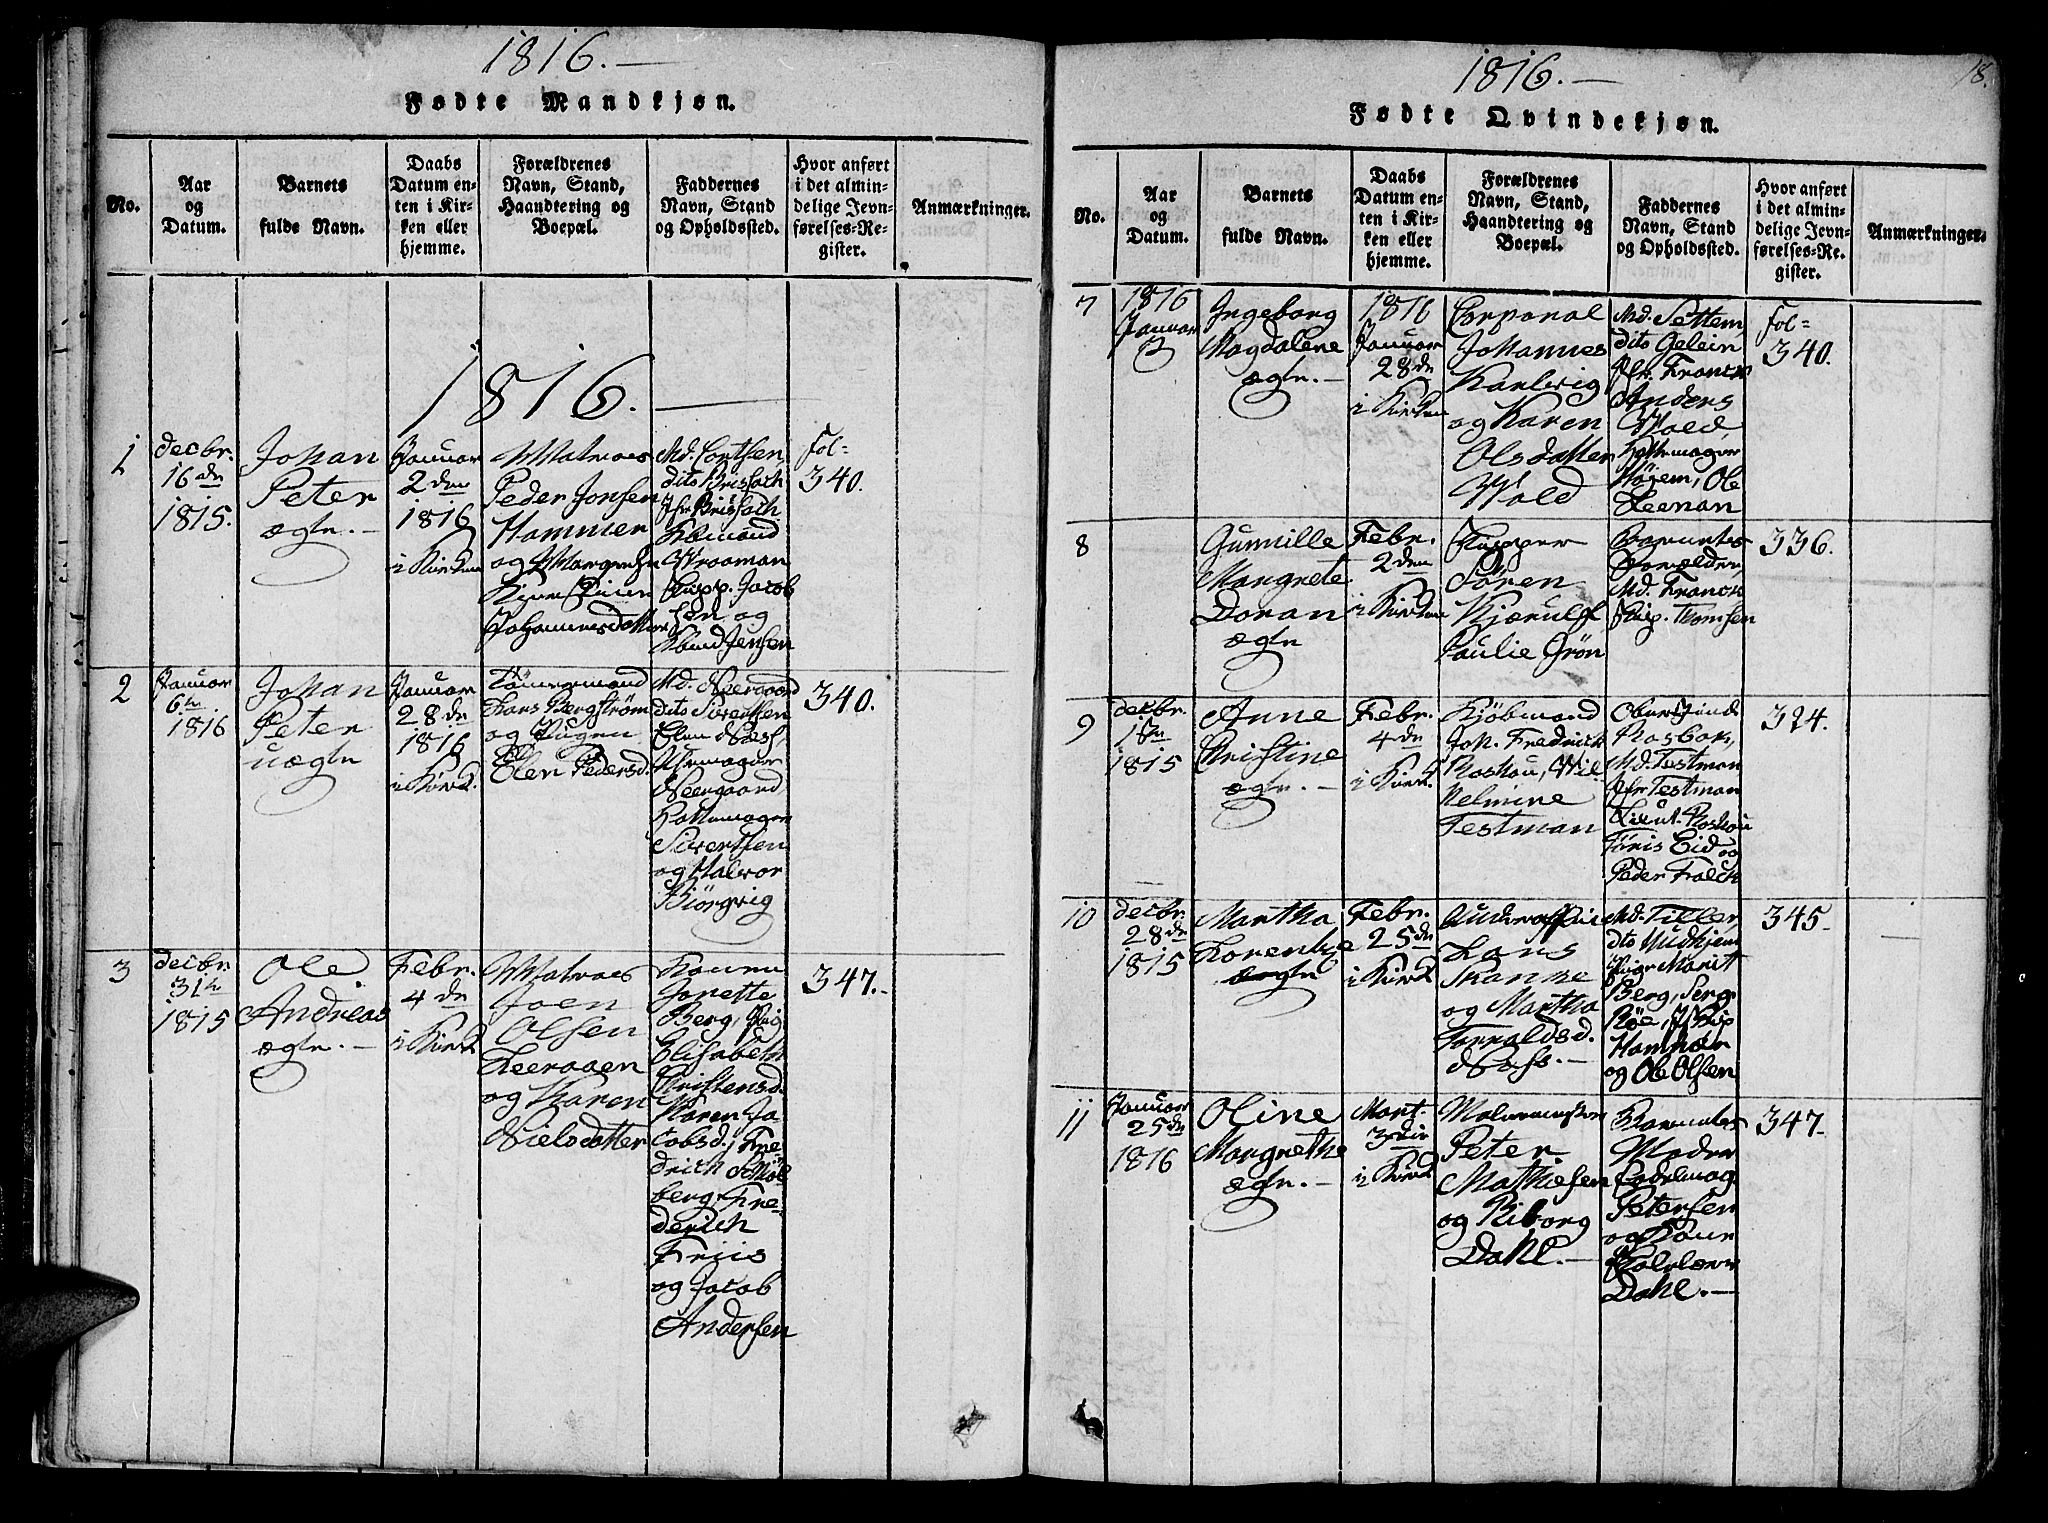 1816.
Fødte Mandkjøn.
No.
Aar
og
Datum.
Barnets
fulde Navn.
Daabs
Datum en-
ten i Kir-
ken eller
hjemme.
Forældrenes
Navn, Stand,
Haandtering og
Boepæl.
Faddernes
Navn, Stand
og Opholdssted.
Hvor anført
i det almin-
delige Jevn-
førelses-Re-
gister.
Anmærkninger.
1816.
1
decbr.
16 de
1815.
Johan
Peter
ægte.
Januar
2 den
1816
i Kirken
Matroes
Peder Jonsen
Hammer
og
Johannesdatter
Md.
dito Brissach
Jfr Brissach
Vrooman
Skipp. Jacob
sen og
Knud Jensen
Fol-
340.
2
Januar
6te
1816
Johan
Peter
uægte
Januar
28 de
1816
i Kirk.
Tømmermand
Lars Bergstrøm
og Pigen
Elen Pedersd.
Md. Neergaard
dito Sivertsen
Elen Næss
Uhrmager
Neergaard
Hattemager
Sivertsen
og Halvor
Biörgvig
340.
3
decbr.
31te
1815
Ole
Andreas
ægte.
Febr.
4 de
i Kirk
Matroes
Joen
Olsen
Leeraaen
og Karen
Nielsdatter
Konen
Jonette
Berg, Pig
Elisabeth
Christensd.
Karen Ja-
cobsd., Fre
derich
berg, Fre-
derich
Friis
og Jacob
Andersen
347.
1816.
18.
Fødte Qvindekjøn.
No.
Aar
og
Datum.
Barnets
fulde Navn.
Daabs
Datum en-
ten i Kir-
ken eller
hjemme.
Forældrenes
Navn, Stand,
Haandtering og
Boepæl.
Faddernes
Navn, Stand
og Opholdssted.
Hvor anført
i det almin-
delige Jevn-
førelses-Re-
gister.
Anmærkninger.
7
1816
Januar
3
Ingeborg
Magdalene
ægte.
1816
Januar
28 de
i Kirken
Corporal
Johannes
og Karen
Olsdatter
Wold
Md. Settem
dito Gelein
Jfr. Franck
Anders
Wold,
Hattemager
Høyem, Ole
Leenan
Fol-
340.
8
Gunnille
Margrete
Doran
ægte
Febr.
2 den
i Kirken
Skipper
Sören
Kjerulf
Paulie Grön
Barnets
Forældre,
Md. Franck
Skip. Thomsen
336.
9
decbr.
1815
Anne
Christine
ægte.
Febr.
4 de
i Kirk
Kjöbmand
Joh. Fredrick
Roskou, Wil-
helmine
Testman
Md. Testman
Jfr Testman
Lieut. Roskou
Jöris Eid og
Peder Falck
324.
10
decbr.
28 de
1815
Martha
Lorentze
ægte
Febr.
25 de
i Kirk
Underofficie
Lars
Skanke
og Martha
Torraldsd.
Næss.
Md. Tiller,
dto Hudkjem
Pige Marit
Berg, Serg.
Röe, Skip
Hammer
og Ole Olsen
345.
11
Januar
25 de
1816
Oline
Margrethe
ægte.
Mart.
3 die
i Kirk
Peter
Mathiesen
og Riborg
Dahl.
Barnets
Moder
Sadelmag.
Petersen
og
Dahl.
347.